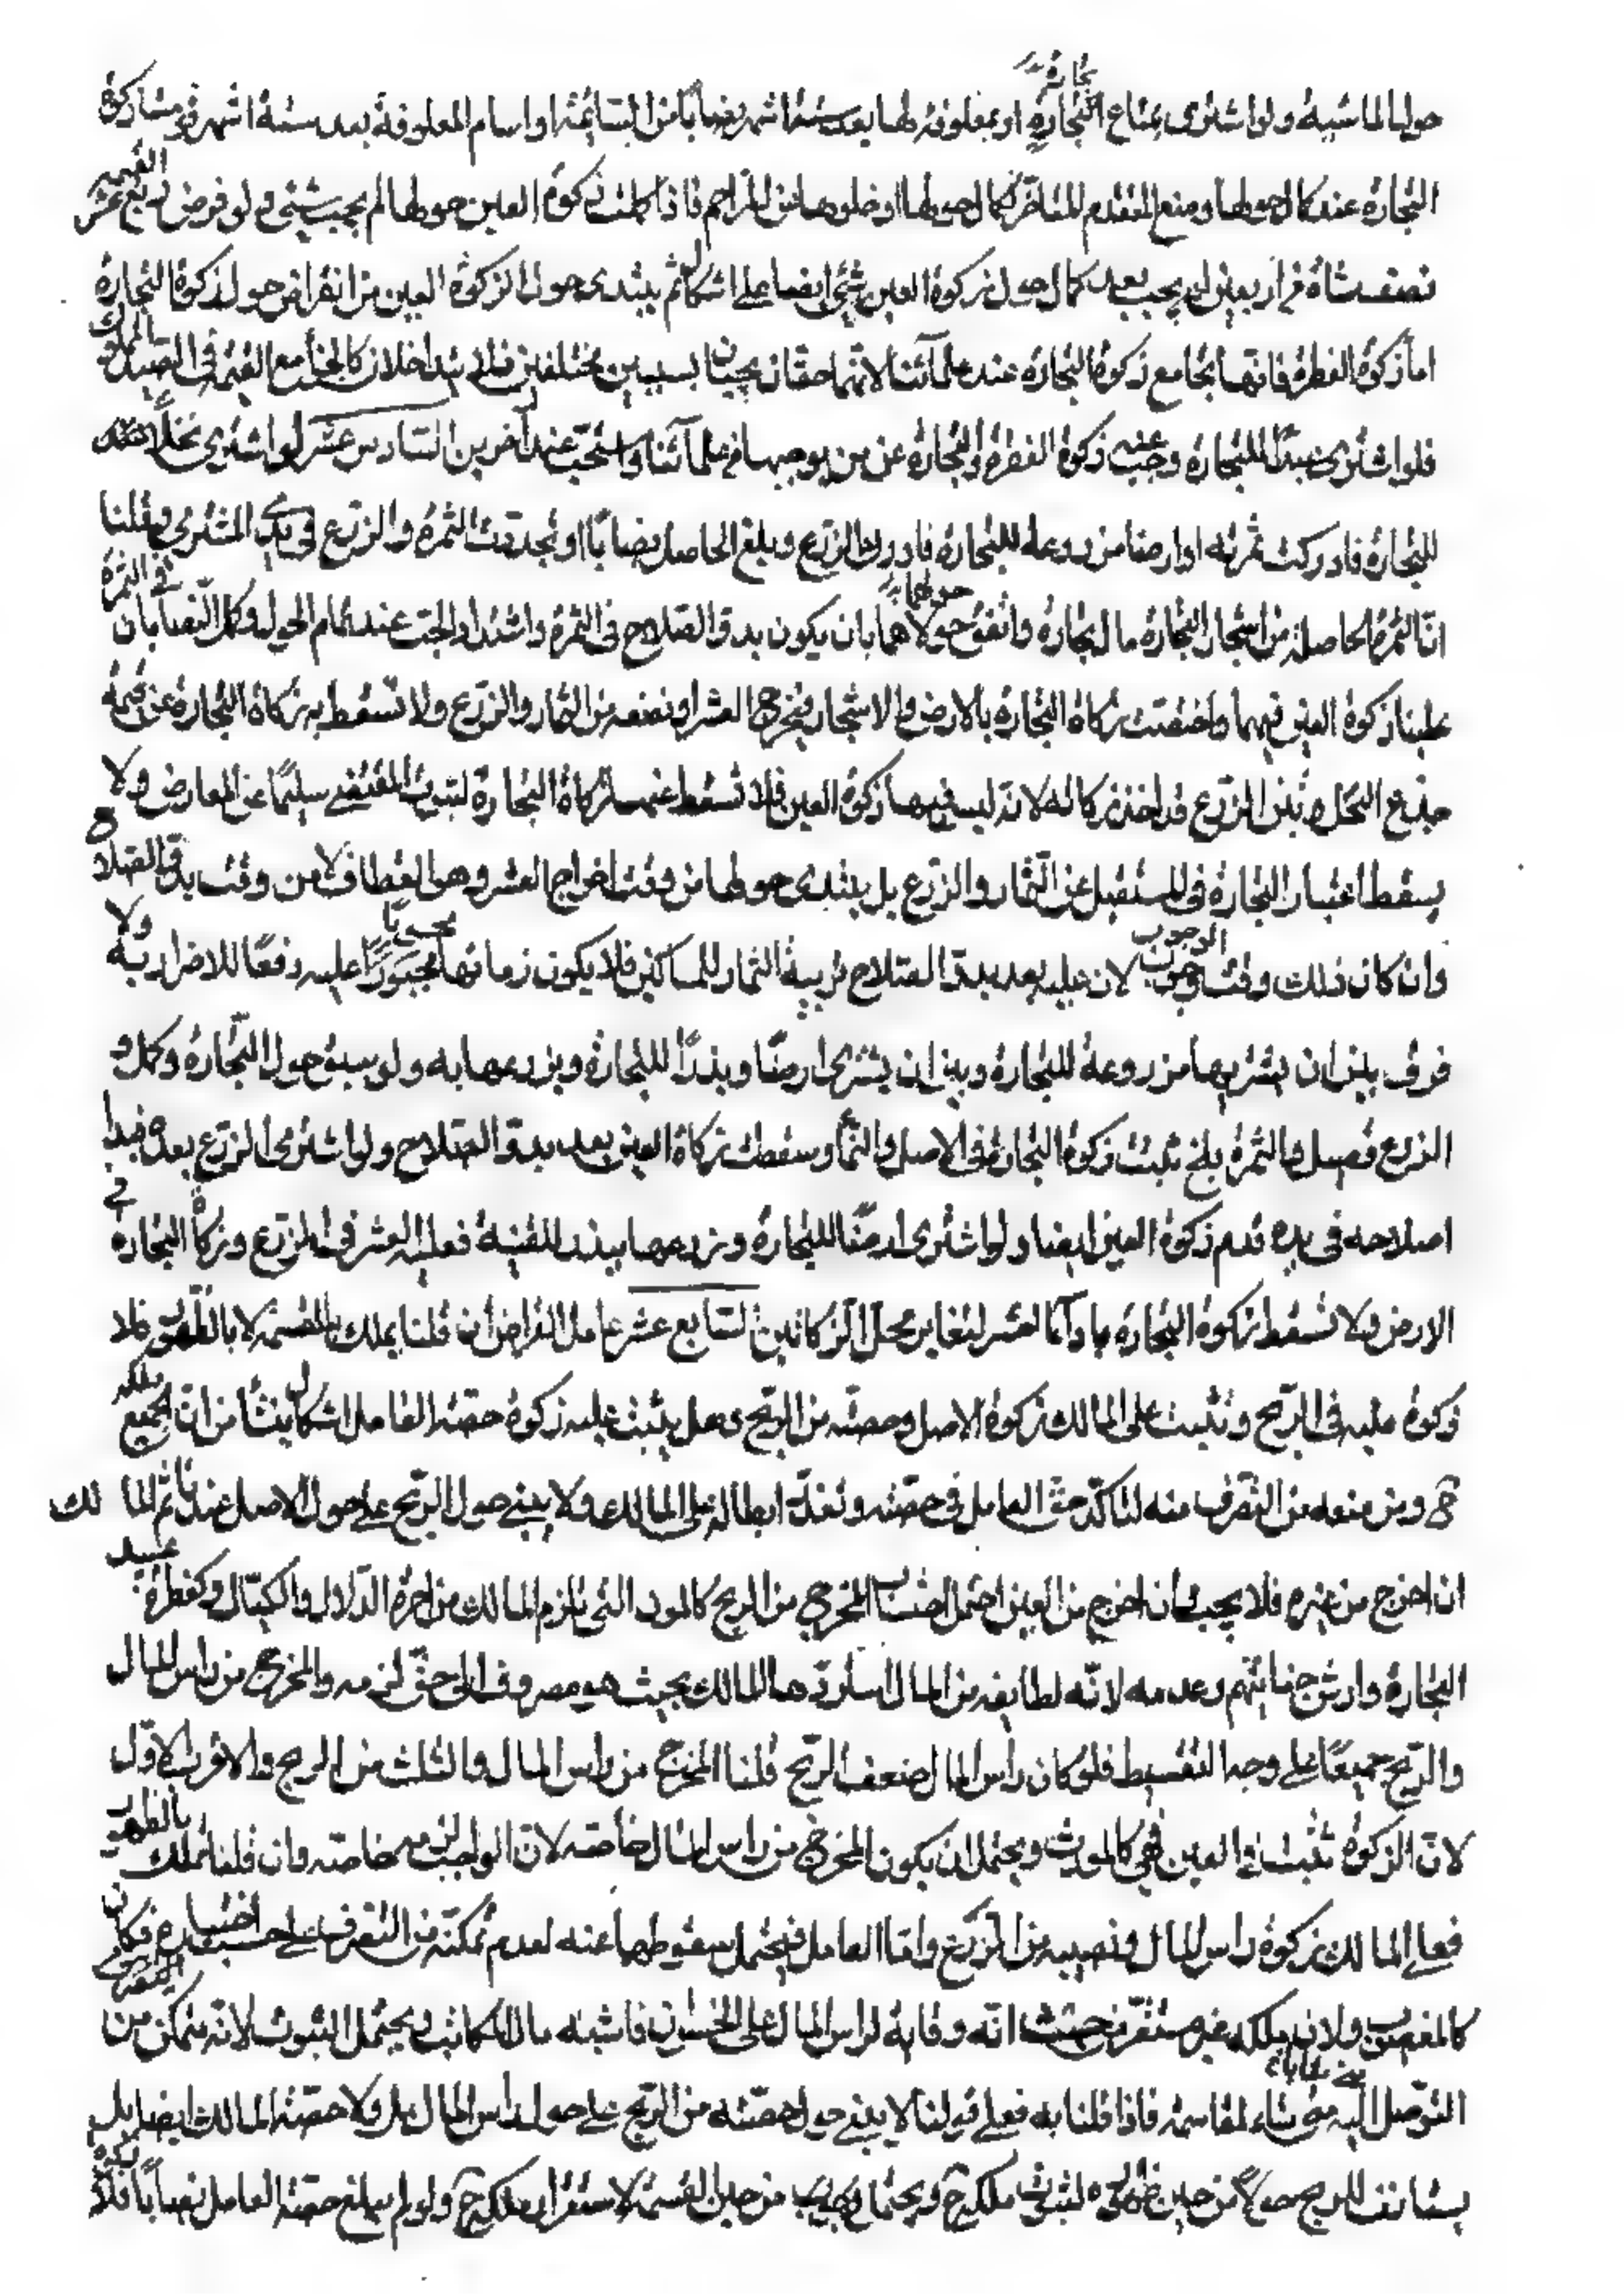 حولها الماشية ولو اشترى بمتاع التجارة او بمعلوفة لها بعد ستة اشهر نصابا من السائمة او اسام المعلوفة بعد ستة اشهر زكوة
التجارة عند كمال حولها ومنع المتقدم المتاخر كمال حولها او خلوها عن المزاحم فاذا كملت زكوة العين حولها لم يجب شئ ولو فرض ربع عشر
نصف شاة في اربعين لم يجب بعد كمال حول زكوة العين شئ ايضا على اشكال ثم يبتدى حول الزكوة العين من انقراض حول زكوة التجارة
اما زكوة الفطرة فانها تجامع زكوة التجارة عند علمائنا لانهما حقان يجبان بسببين مختلفين فلا يتداخلان كالجزاء مع القيمة في الصيد المملوك
فلو اشترى عبدا للتجارة وجب عنه زكوة الفطرة والتجارة عن من يوجبها في علمائنا واستحب عند آخرين السادس عشر لو اشترى نخلا
للتجارة فادركت ثمرته او ارضا مزروعة للتجارة فادرك الزرع وبلغ الحاصل نصابا او تجددت الثمرة والزرع في يدي المشترى وقلنا
ان الثمرة الحاصلة من اشجار التجارة مال تجارة واتفق حولاهما بان يكون بدو الصلاح في الثمرة واشتداد الحب عند تمام الحول وكمل النصابان
غلبنا زكوة العين فيهما واختصت زكاة التجارة بالارض والاشجار فيخرج العشر او نصفه من الثمار والزرع ولا تسقط به زكاة التجارة عن قيمة
جذع النخل وتبن الزرع قد اخذ زكاته لانه ليس فيها زكوة العين فلا تسقط عنها زكاة التجارة لثبوت المقتضى سليما عن المعارض ولا
يسقط اعتبار التجارة في المستقبل عن الثمار والزرع بل يبتدى حولها من وقت اخراج العشر وهو القطاف لا من وقت بدو الصلاح
وان كان ذلك وقت الوجوب لان عليه بعد بدو الصلاح تربية الثمار للمساكين فلا يكون زمانها محسوبا عليه دفعا للاضرار به ولا
فرق بين ان يشتريها مزروعة للتجارة وبين ان يشترى ارضا وبذرا للتجارة ويزرعها به ولو سبق حول التجارة وكمل و
الزرع فصيل والثمرة بلح ثبتت زكوة التجارة في الاصل والنماء وسقطت زكاة العين بعد بدو الصلاح ولو اشترى الزرع بعد فبدا
اصلاحه في يده قدم زكوة العين ايضا ولو اشترى ارضا للتجارة وزرعها ببذر للقنية فعليه العشر في الزرع وزكاة التجارة في
الارض ولا تسقط زكوة التجارة باداء العشر لتغاير محل الزكاتين السابع عشر عامل القراض ان قلنا يملك بالقسمة لا بالظهور فلا
زكوة عليه في الربح وتثبت على المالك زكوة الاصل وحصته من الربح وهل يثبت عليه زكوة حصة العامل اشكال ينشأ من ان الجميع ملكه
ح ومن منعه من التصرف منه لتاكد حق العامل في حصته وتعذر ابطاله على المالك ولا يبنى حول الربح على حول الاصل عندنا ثم المالك
ان اخرج من غيره فلا يجب وان اخرج من العين احتمل احتساب المخرج من الربح كالمؤن التي تلزم المالك من اجرة الدلال والكيال وكفطرة عبيد
التجارة وارش جنايتهم وعدمه لانه لطايفة من المال استردها المالك بحيث هو مصروف الى حق لزمه والمخرج من راس المال
والربح جميعا على وجه التقسيط فلو كان راس المال ضعف الربح قلنا المخرج من راس المال والثلث من الربح والاقرب الاول
لان الزكوة تثبت في العين فهى كالمؤنة ويحتمل ان يكون المخرج من راس المال خاصة لان الواجب لزمه خاصة وان قلنا يملك بالظهور
فعلى المالك زكوة راس المال ونصيبه من الربح واما العامل فيحتمل سقوطها عنه لعدم تمكنه من التصرف على حسب اختياره فكان
كالمغصوب ولان ملكه غير مستقر من حيث انه وقاية لراس المال على الخسران فاشبه مال المكاتب ويحتمل الثبوت لانه متمكن من
التوصل اليه متى شاء لمقاسمة فاذا قلنا به فعلى قولنا لا يبنى حول حصته من الربح على حول راس المال بل ولا حصة المالك ايضا بل
يستانف للربح حولا من حين ظهوره لثبوت ملكه ح ويحتمل من حين القسمة لاستقرار ملكه ح ولو لم يبلغ حصة العامل نصابا فلا زكوة